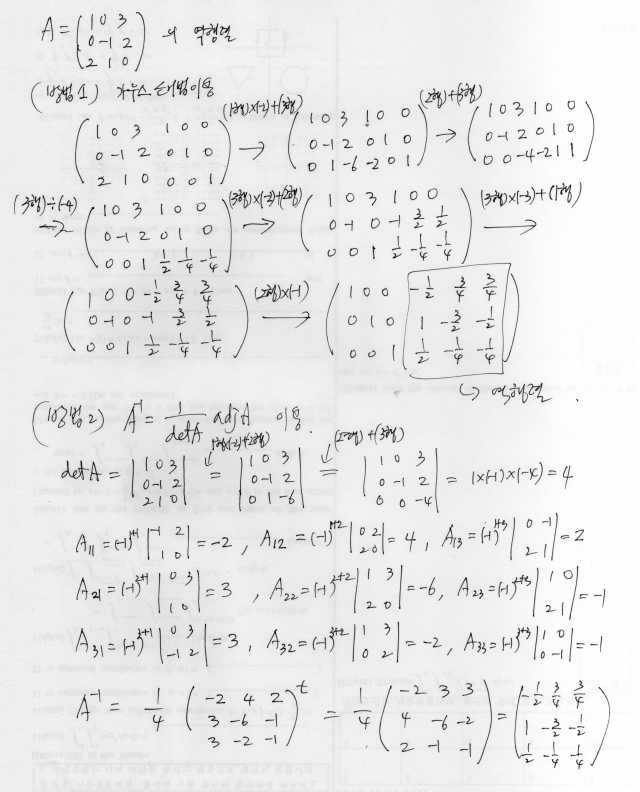 A = (1 0 3 / 0 -1 2 / 2 1 0) 의 역행렬
(방법 1) 가우스 소거법 이용
(1 0 3 1 0 0 / 0 -1 2 0 1 0 / 2 1 0 0 0 1) (1행)×(-2)+(3행) → (1 0 3 1 0 0 / 0 -1 2 0 1 0 / 0 1 -6 -2 0 1) (2행)+(3행) → (1 0 3 1 0 0 / 0 -1 2 0 1 0 / 0 0 -4 -2 1 1)
(3행)÷(-4) → (1 0 3 1 0 0 / 0 -1 2 0 1 0 / 0 0 1 1/2 -1/4 -1/4) (3행)×(-2)+(2행) → (1 0 3 1 0 0 / 0 -1 0 -1 3/2 1/2 / 0 0 1 1/2 -1/4 -1/4) (3행)×(-3)+(1행) →
(1 0 0 -1/2 3/4 3/4 / 0 -1 0 -1 3/2 1/2 / 0 0 1 1/2 -1/4 -1/4) (2행)×(-1) → (1 0 0 -1/2 3/4 3/4 / 0 1 0 1 -3/2 -1/2 / 0 0 1 1/2 -1/4 -1/4)
↳ 역행렬 .
(방법 2) A⁻¹ = 1/detA adjA 이용.
detA = |1 0 3 / 0 -1 2 / 2 1 0| 1행×(-2)+2행) = |1 0 3 / 0 -1 2 / 0 1 -6| (2행)+(3행) = |1 0 3 / 0 -1 2 / 0 0 -4| = 1×(-1)×(-4) = 4
A₁₁ = (-1)¹⁺¹ |-1 2 / 1 0| = -2, A₁₂ = (-1)¹⁺² |0 2 / 2 0| = 4, A₁₃ = (-1)¹⁺³ |0 -1 / 2 1| = 2
A₂₁ = (-1)²⁺¹ |0 3 / 1 0| = 3, A₂₂ = (-1)²⁺² |1 3 / 2 0| = -6, A₂₃ = (-1)²⁺³ |1 0 / 2 1| = -1
A₃₁ = (-1)³⁺¹ |0 3 / -1 2| = 3, A₃₂ = (-1)³⁺² |1 3 / 0 2| = -2, A₃₃ = (-1)³⁺³ |1 0 / 0 -1| = -1
A⁻¹ = 1/4 (-2 4 2 / 3 -6 -1 / 3 -2 -1)ᵗ = 1/4 (-2 3 3 / 4 -6 -2 / 2 -1 -1) = (-1/2 3/4 3/4 / 1 -3/2 -1/2 / 1/2 -1/4 -1/4)